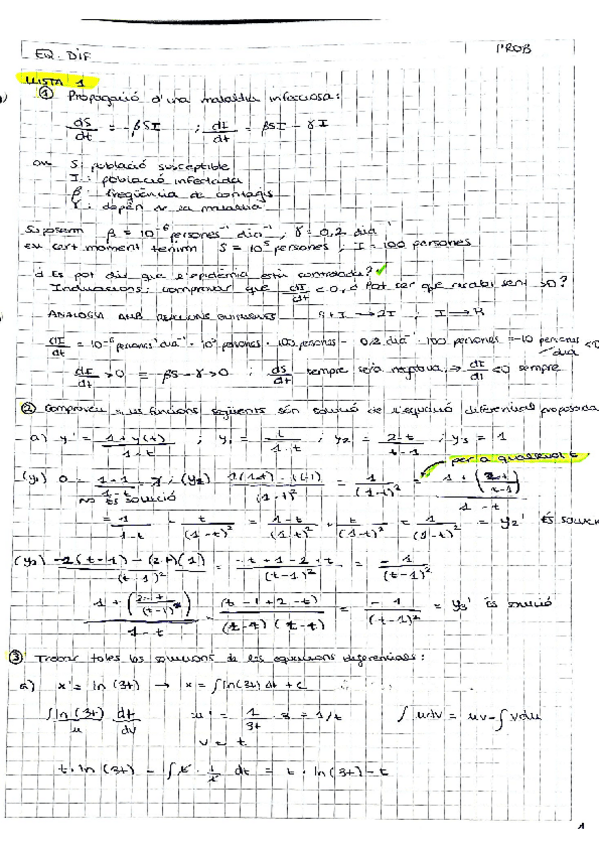 EQ. DIF
PROB
LLISTA 1
① Propagació d'una malaltia infecciosa:
dS/dt = -βSI ; dI/dt = βSI - γI
on S: població susceptible
I: població infectada
β: freqüència de contagis
γ: depèn de la malaltia
Suposem β = 10⁻⁶ persones⁻¹ dia⁻¹ ; γ = 0,2 dia⁻¹
en cert moment tenim S = 10⁵ persones ; I = 100 persones
¿Es pot dir que l'epidèmia està controlada? ✓
Indicacions: comprovar que dI/dt < 0, ¿Pot ser que sent >0?
ANALOGIA AMB REACCIONS S+I → 2I ; I → R
dI/dt = 10⁻⁶ persones⁻¹ dia⁻¹ · 10⁵ persones · 100 persones - 0,2 dia⁻¹ · 100 persones = -10 persones/dia < 0
dI/dt > 0 = βS - γ > 0 ; dS/dt sempre serà negativa, ⇒ dI/dt < 0 sempre
② Comproveu si les funcions següents són solució de l'equació diferencial proposada
a) y' = (1 + y(t))/(1 - t) ; y₁ = t/(1 - t) ; y₂ = (2-t)/(t-1) ; y₃ = 1
per a qualsevol t
No és solució
= 1/(1-t) + t/(1-t)² = (1-t)/(1-t)² + t/(1-t)² = 1/(1-t)² = y₂' És solució
(y₃) (-1(t-1) - (2-t)(1))/(t-1)² = (-t+1-2+t)/(t-1)² = -1/(t-1)²
= -1/(t-1)² = y₃' és solució
③ Trobar totes les solucions de les equacions diferencials:
a) x' = ln(3t) → x = ∫ln(3t) dt + C
∫ ln(3t) dt u' = 1/3t · 3 = 1/t ∫udv = uv - ∫vdu
u dv v = t
t · ln(3t) - ∫t · 1/t dt = t · ln(3t) - t
1